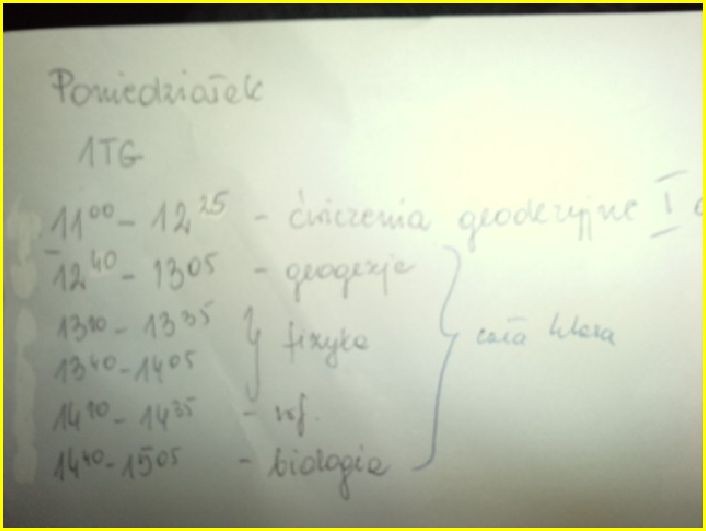 Poniedziałek
1TG
11⁰⁰ - 12²⁵ - ćwiczenia geodezyjne I
12⁴⁰ - 13⁰⁵ - geogezje
13¹⁰ - 13³⁵ } fizyka
13⁴⁰ - 14⁰⁵
14¹⁰ - 14³⁵ - wf.
14⁴⁰ - 15⁰⁵ - biologia
cała klasa